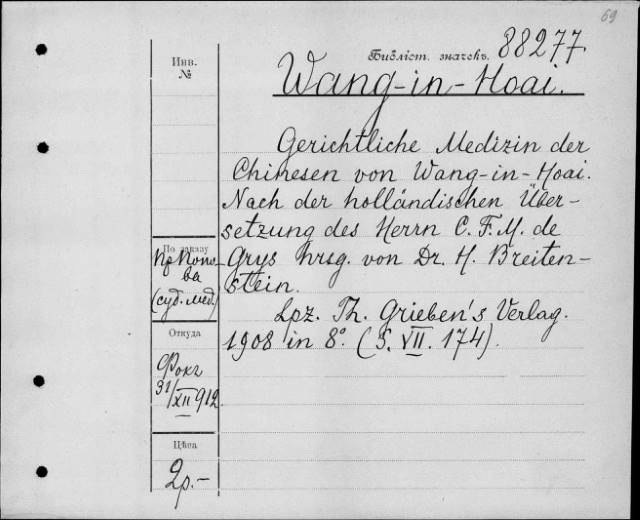 69
Библіот. значекъ. 88277.
Инв.
№
Wang-in-Hoai.
Gerichtliche Medizin der
Chinesen von Wang-in-Hoai.
Nach der holländischen Über-
setzung des Herrn C. F. M. de
Grys hrsg. von Dr. H. Breiten-
stein.
Lpz. Th. Grieben's Verlag.
1908 in 8°. (S. VII. 174).
По заказу
Пр Попо-
ва
(суд. мед.)
Откуда
Фокг
31/XII 912
Цѣна
2р.-